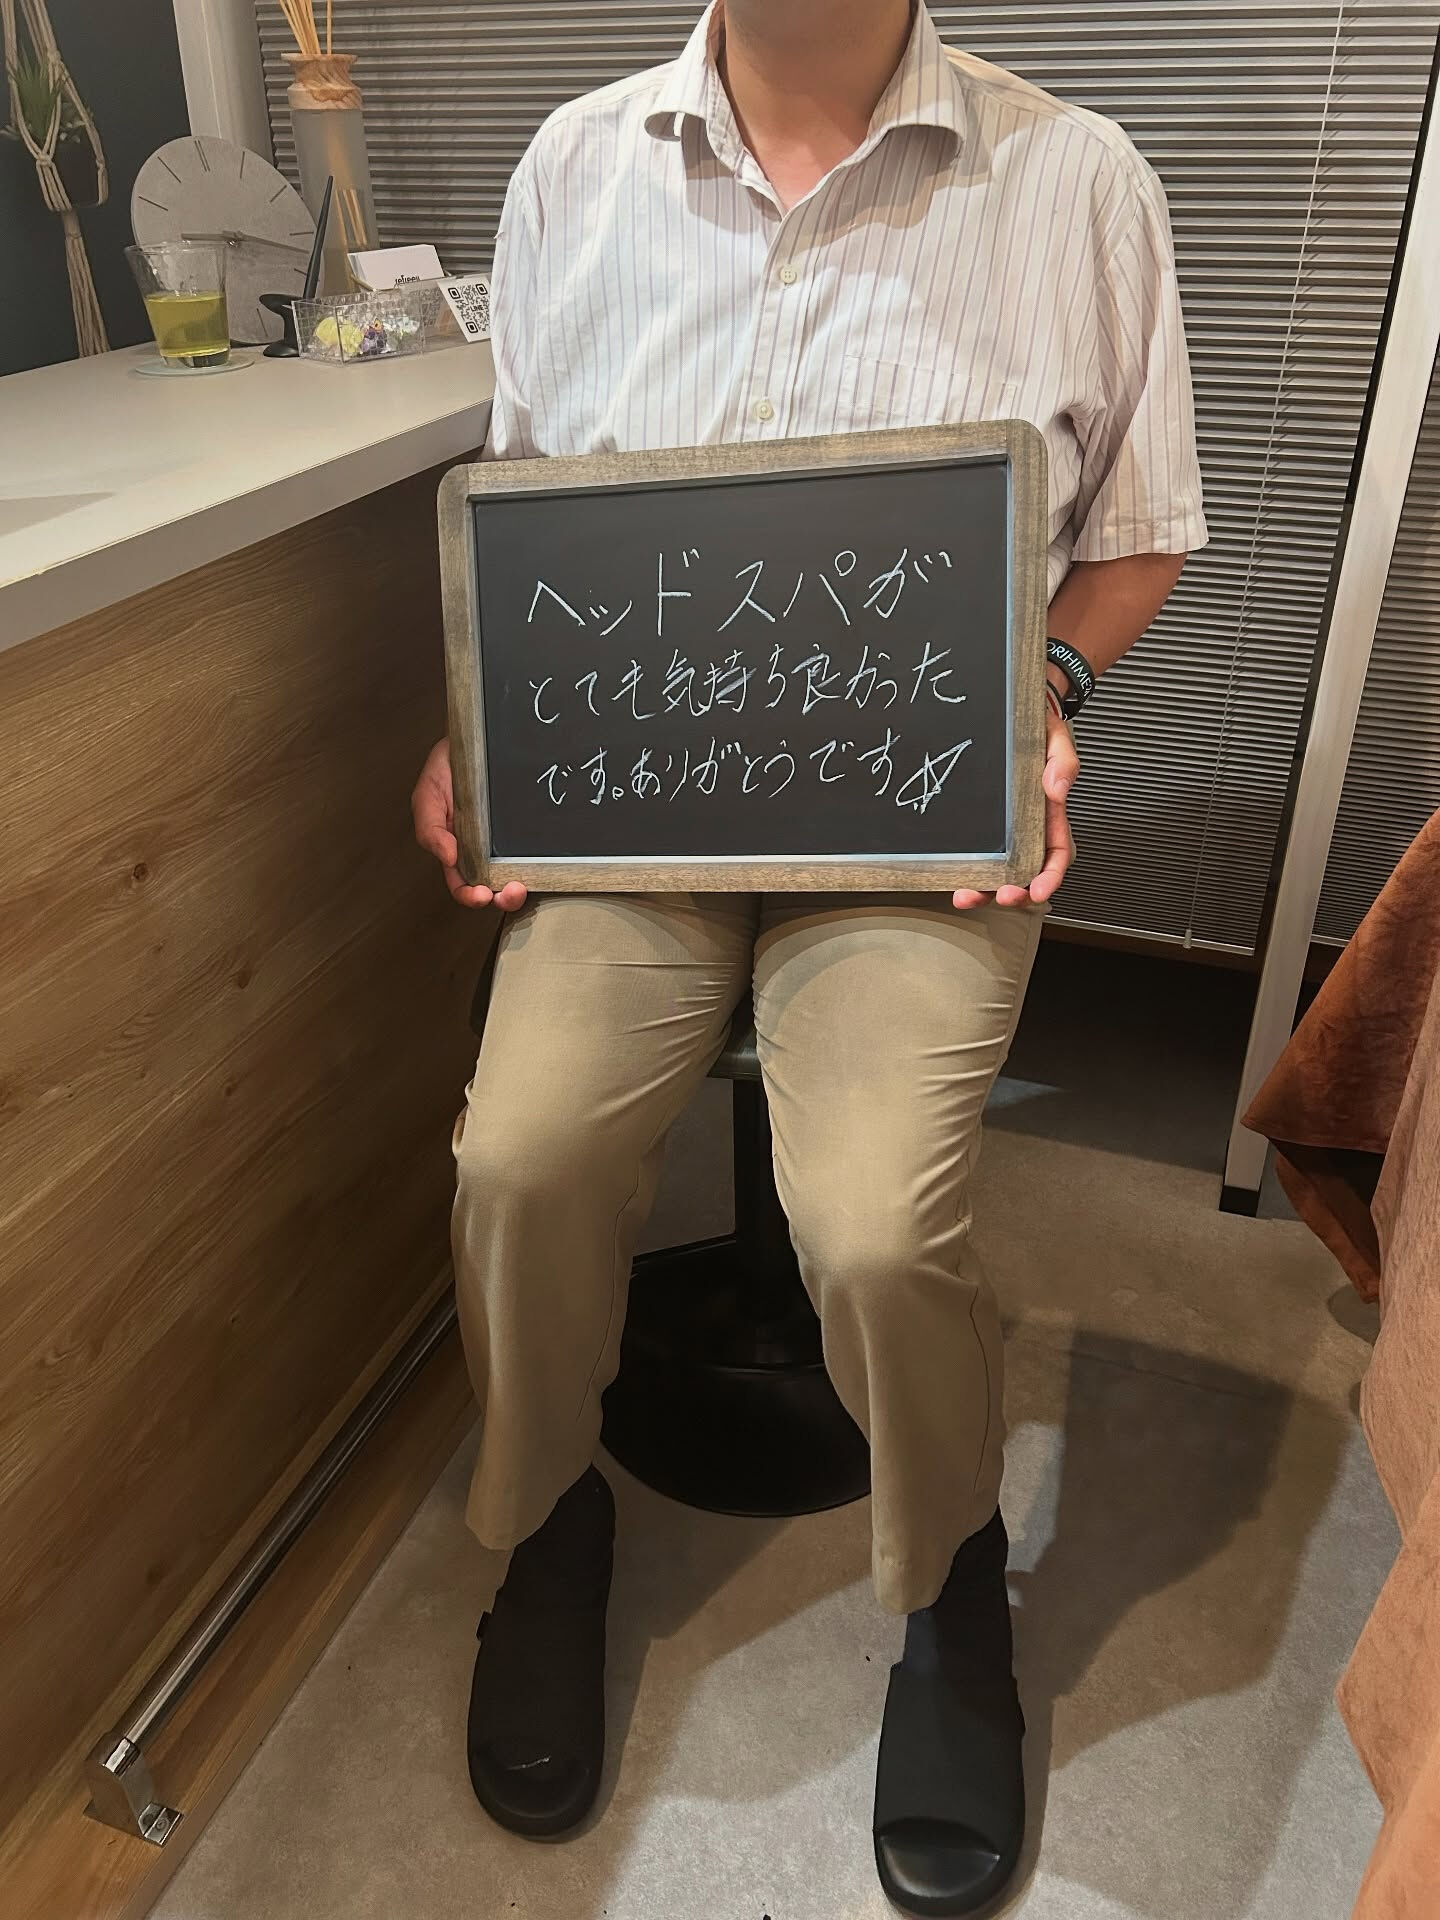 ヘッドスパが
とても気持ち良かった
です。ありがとうです
ORIHIME
LINE